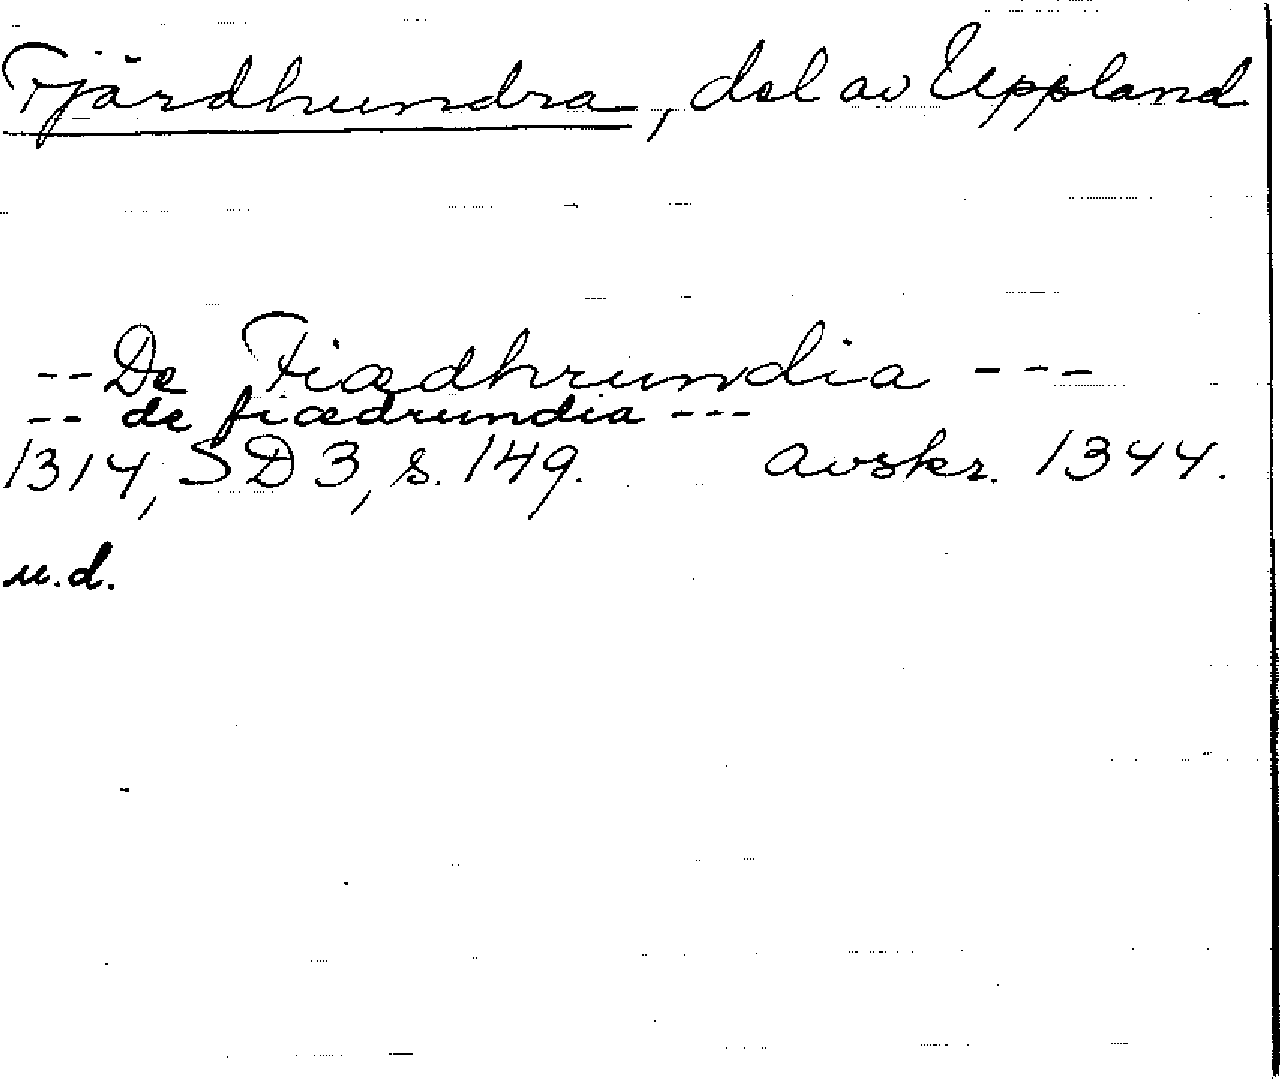 Fjärdhundra, del av Uppland
-- De Fiædhrundia ---
-- de fiædrundia ---
1314, SD 3, s. 149. avskr. 1344.
u.d.